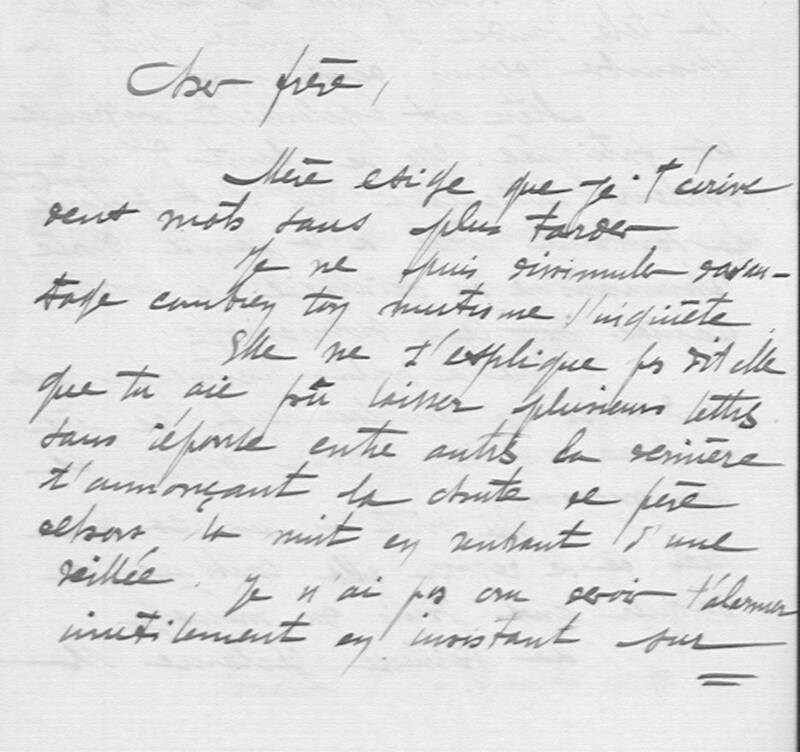 Cher frère,
Mère exige que je t'écrive
deux mots sans plus tarder
Je ne puis dissimuler davan-
tage combien ton mutisme l'inquiète
Elle ne s'explique pas dit elle
que tu aie pû laisser plusieurs lettres
sans réponse entre autres la dernière
t'annonçant la chute de père
dehors la nuit en rentrant d'une
veillée. Je n'ai pas cru devoir t'alarmer
inutilement en insistant sur